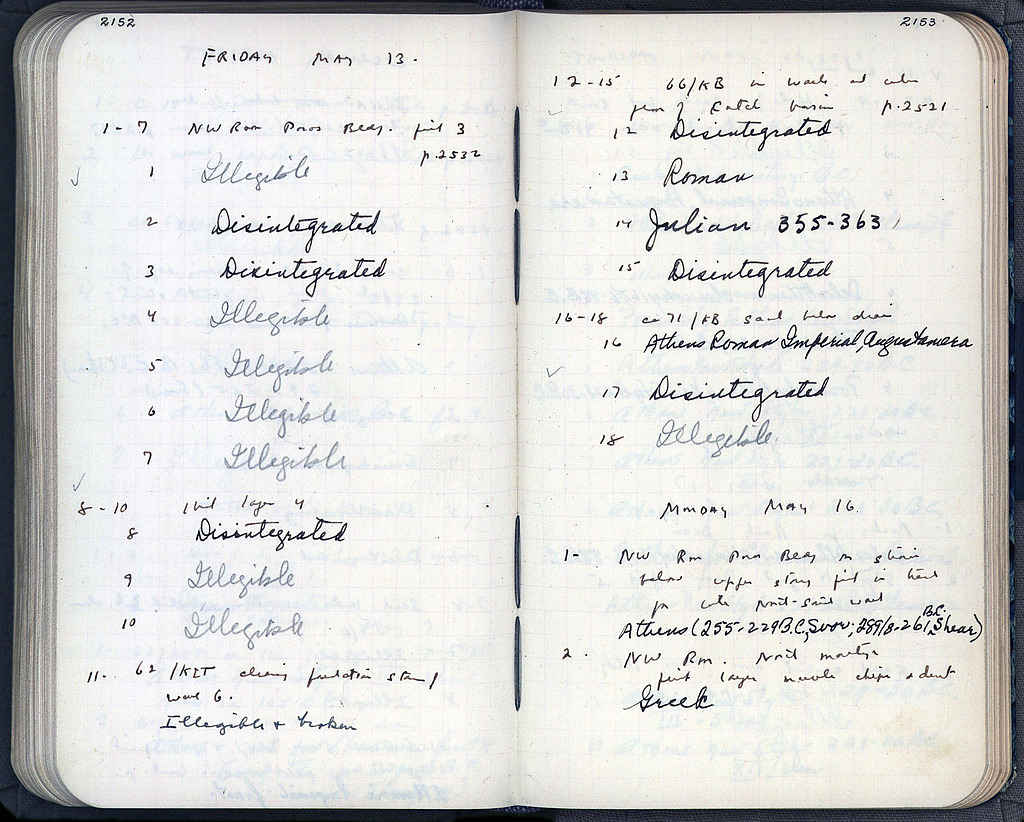 2152
FRIDAY MAY 13.
1-7 NW Rom Poros Bldg. fill 3
p.2532
1 Illegible
2 Disintegrated
3 Disintegrated
4 Illegible
5 Illegible
6 Illegible
7 Illegible
8-10 layer 4
8 Disintegrated
9 Illegible
10 Illegible
11- 62/KET foundation
wall 6.
Illegible & broken
2153
12-15 66/KB in
Catch basin p.2521
12 Disintegrated
13 Roman
14 Julian 355-363
15 Disintegrated
16-18 71/KB drain
16 Athens Roman Imperial, Augustan era
17 Disintegrated
18 Illegible
MONDAY MAY 16.
1- NW Rm Poros Bldg
below upper fill in
North-South wall
Athens (255-229 B.C., Svor.; 289/8-261 B.C., Shear)
2. NW Rm.
layer marble chips
Greek